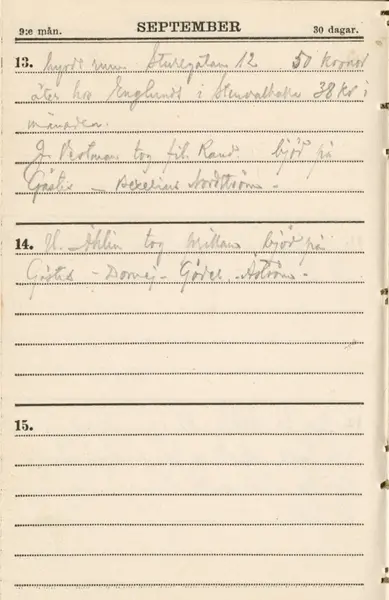 9:e mån. SEPTEMBER 30 dagar.
13. hyrdt rum Sturegatan 12 50 kronor
äter hos Englunds i Stenvalkska 38 kr i
månaden.
J. Vestman tog fil. Kand bjöd på
Gästis – Bexelius Nordström –
14. H. Åhlin tog bjöd på
Gästis – – Gödel – Åström –
15.